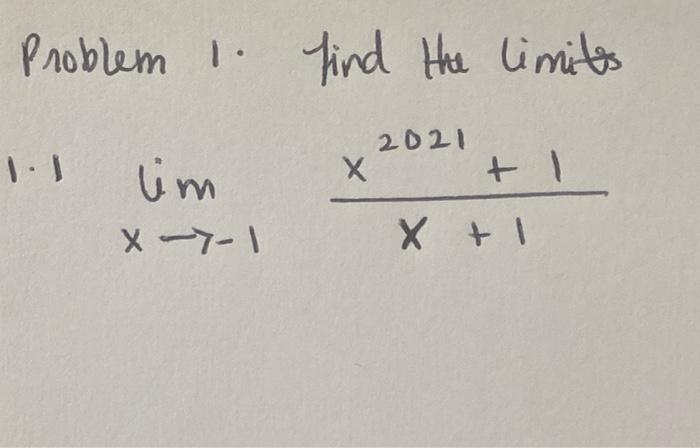 Problem 1. find the limits
1.1 lim x→-1 x^2021 + 1 / x + 1